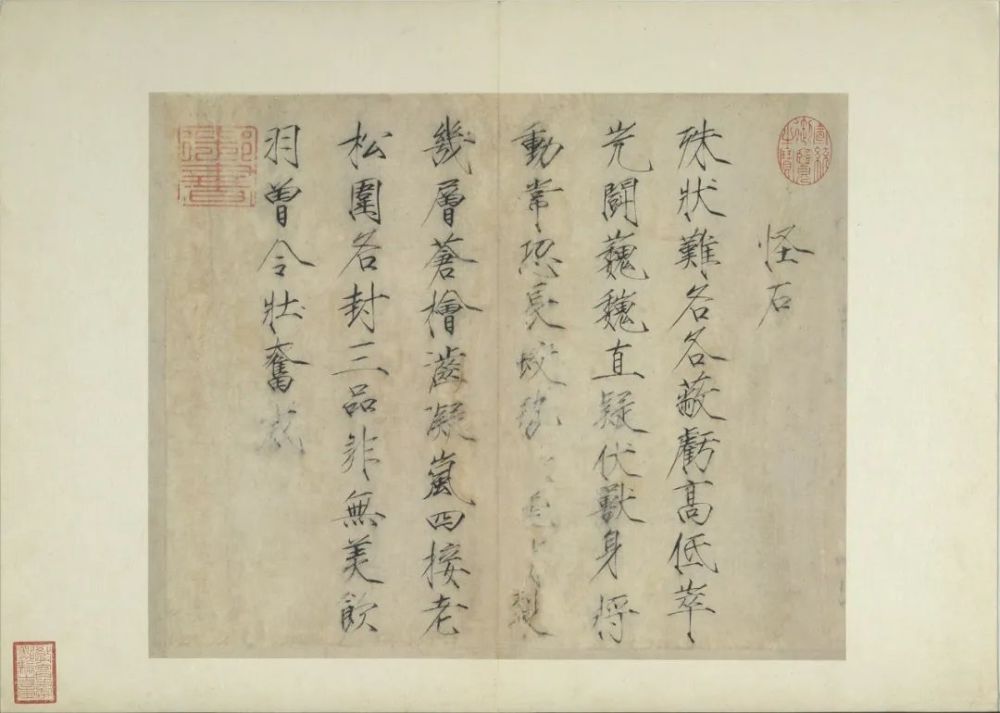 怪石
殊狀難名各蔽虧高低萃
光鬪巍巍直疑伏獸身將
動常恐長蛟勢
幾層蒼檜藹凝嵐四接老
松圍名封三品非無美飲
羽曾令壯奮威